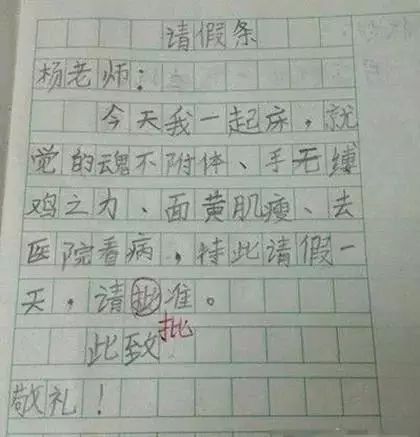 请假条
杨老师:
今天我一起床,就
觉的魂不附体、手无缚
鸡之力、面黄肌瘦、去
医院看病,特此请假一
天,请批准。
批
此致
敬礼!